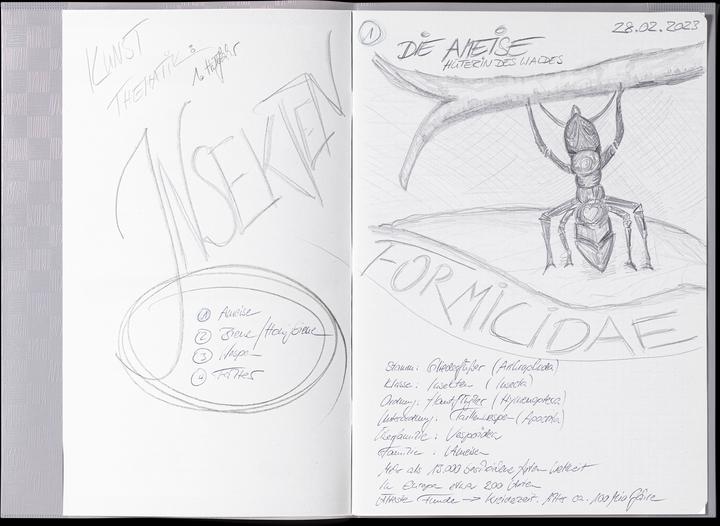 KUNST
THEMATIK:
1. Halbjahr
INSEKTEN
① Ameise
② Biene / Honigbiene
③ Wespe
④
①
28.02.2023
DIE AMEISE
HÜTERIN DES WALDES
FORMICIDAE
Stamm: Gliederfüßer (Arthropoda)
Klasse: Insekten (Insecta)
Ordnung: Hautflügler (Hymenoptera)
Unterordnung: Taillenwespen (Apocrita)
Überfamilie: Vespoidea
Familie: Ameisen
Mehr als 13.000 beschriebene Arten weltweit
In Europa etwa 200 Arten
Älteste Funde → Kreidezeit. Alter ca. 100 Mio Jahre